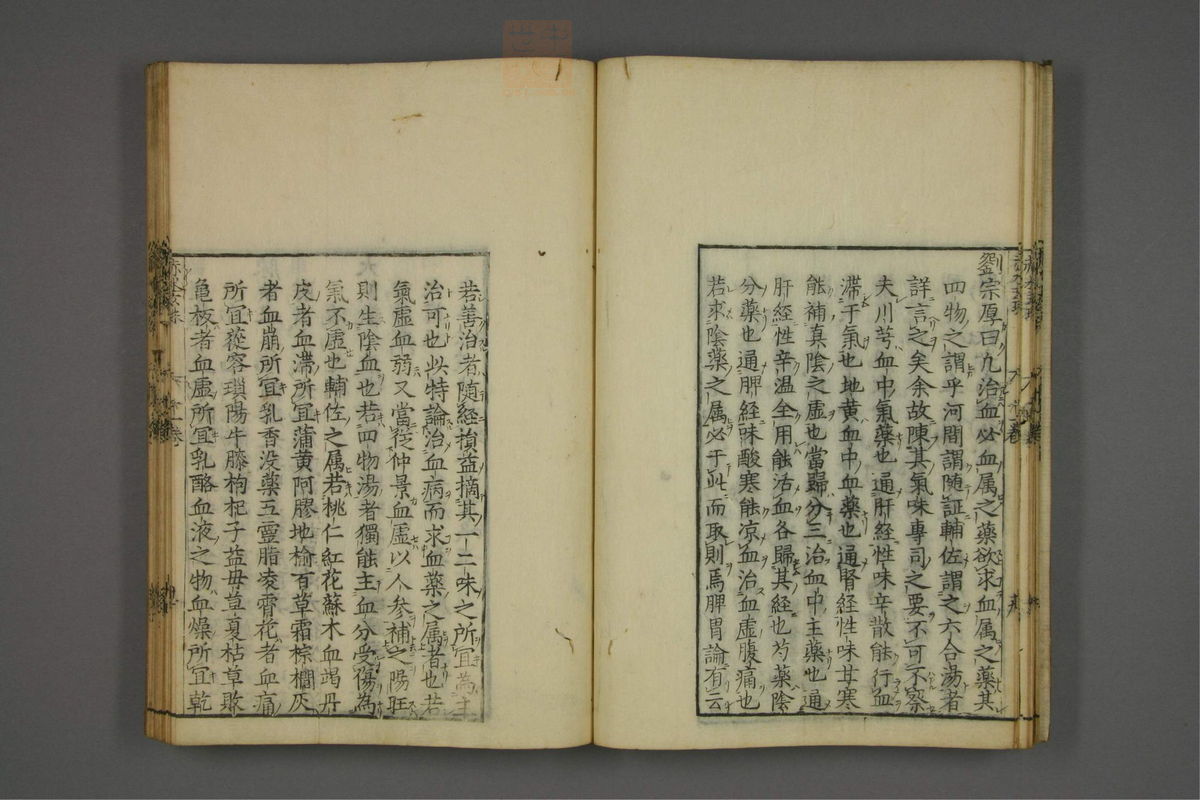 劉宗厚曰九治血必血属之藥欲求血属之藥其
四物之謂乎河間謂随証輔佐謂之六合湯者
詳言之矣余故陳其氣味專司之要不可不察
夫川芎血中氣藥也通肝経性味辛散能行血
滞于氣也地黄血中血藥也通腎経性味甘寒
能補真陰之虚也當歸分三治血中主藥也通
肝経性辛温全用能活血各歸其経也芍藥陰
分藥也通脾経味酸寒能凉血治血虚腹痛也
若求陰藥之属必于此而取則焉脾胃論有云
若善治者随経損益摘其一二味之所宜為主
治可也此特論治血病而求血藥之属者也若
氣虚血弱又當従仲景血虚以人参補之陽旺
則生陰血也若四物湯者獨能主血分受傷為
氣不虚也輔佐之属若桃仁紅花蘇木血竭丹
皮者血滞所宜蒲黄阿膠地榆百草霜棕櫚灰
者血崩所宜乳香没藥五霊脂凌霄花者血痛
所宜蓯容瑣陽牛膝枸杞子益母草夏枯草敗
亀板者血虚所宜乳酪血液之物血燥所宜乾